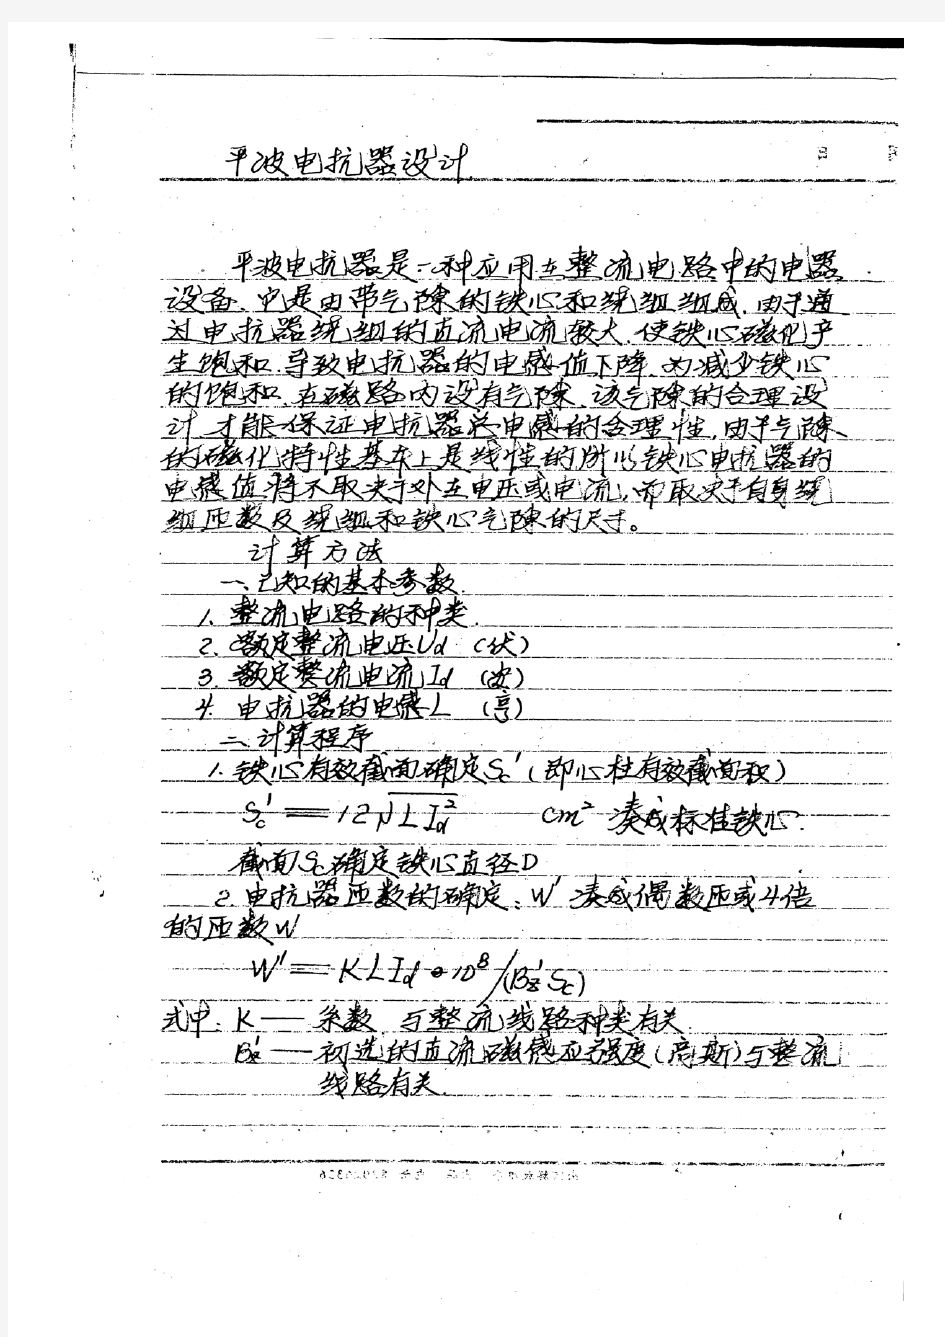 平波电抗器设计
平波电抗器是一种应用在整流电路中的电器
设备．它是由带气隙的铁心和绕组组成．由于通
过电抗器绕组的直流电流较大．使铁心磁化产
生饱和．导致电抗器的电感值下降．为减少铁心
的饱和．在磁路内设有气隙．该气隙的合理设
计才能保证电抗器总电感的合理性．由于气隙
的磁化特性基本上是线性的所以铁心电抗器的
电感值将不取决于外在电压或电流，而取决于自身绕
组匝数及绕组和铁心气隙的尺寸。
计算方法
一、已知的基本参数．
1. 整流电路的种类．
2. 额定整流电压Ud （伏）
3. 额定整流电流Id （安）
4. 电抗器的电感L （亨）
二、计算程序
1. 铁心有效截面确定Sc′（即心柱有效截面积）
Sc′＝12√LId² cm² 凑成标准铁心．
截面Sc确定铁心直径D
2. 电抗器匝数的确定、W′凑成偶数匝或4倍
的匝数W
W′＝KLId·10⁸/(Bz′Sc)
式中：K — 系数．与整流线路种类有关．
Bz′—初选的直流磁感应强度（高斯）与整流
线路有关．